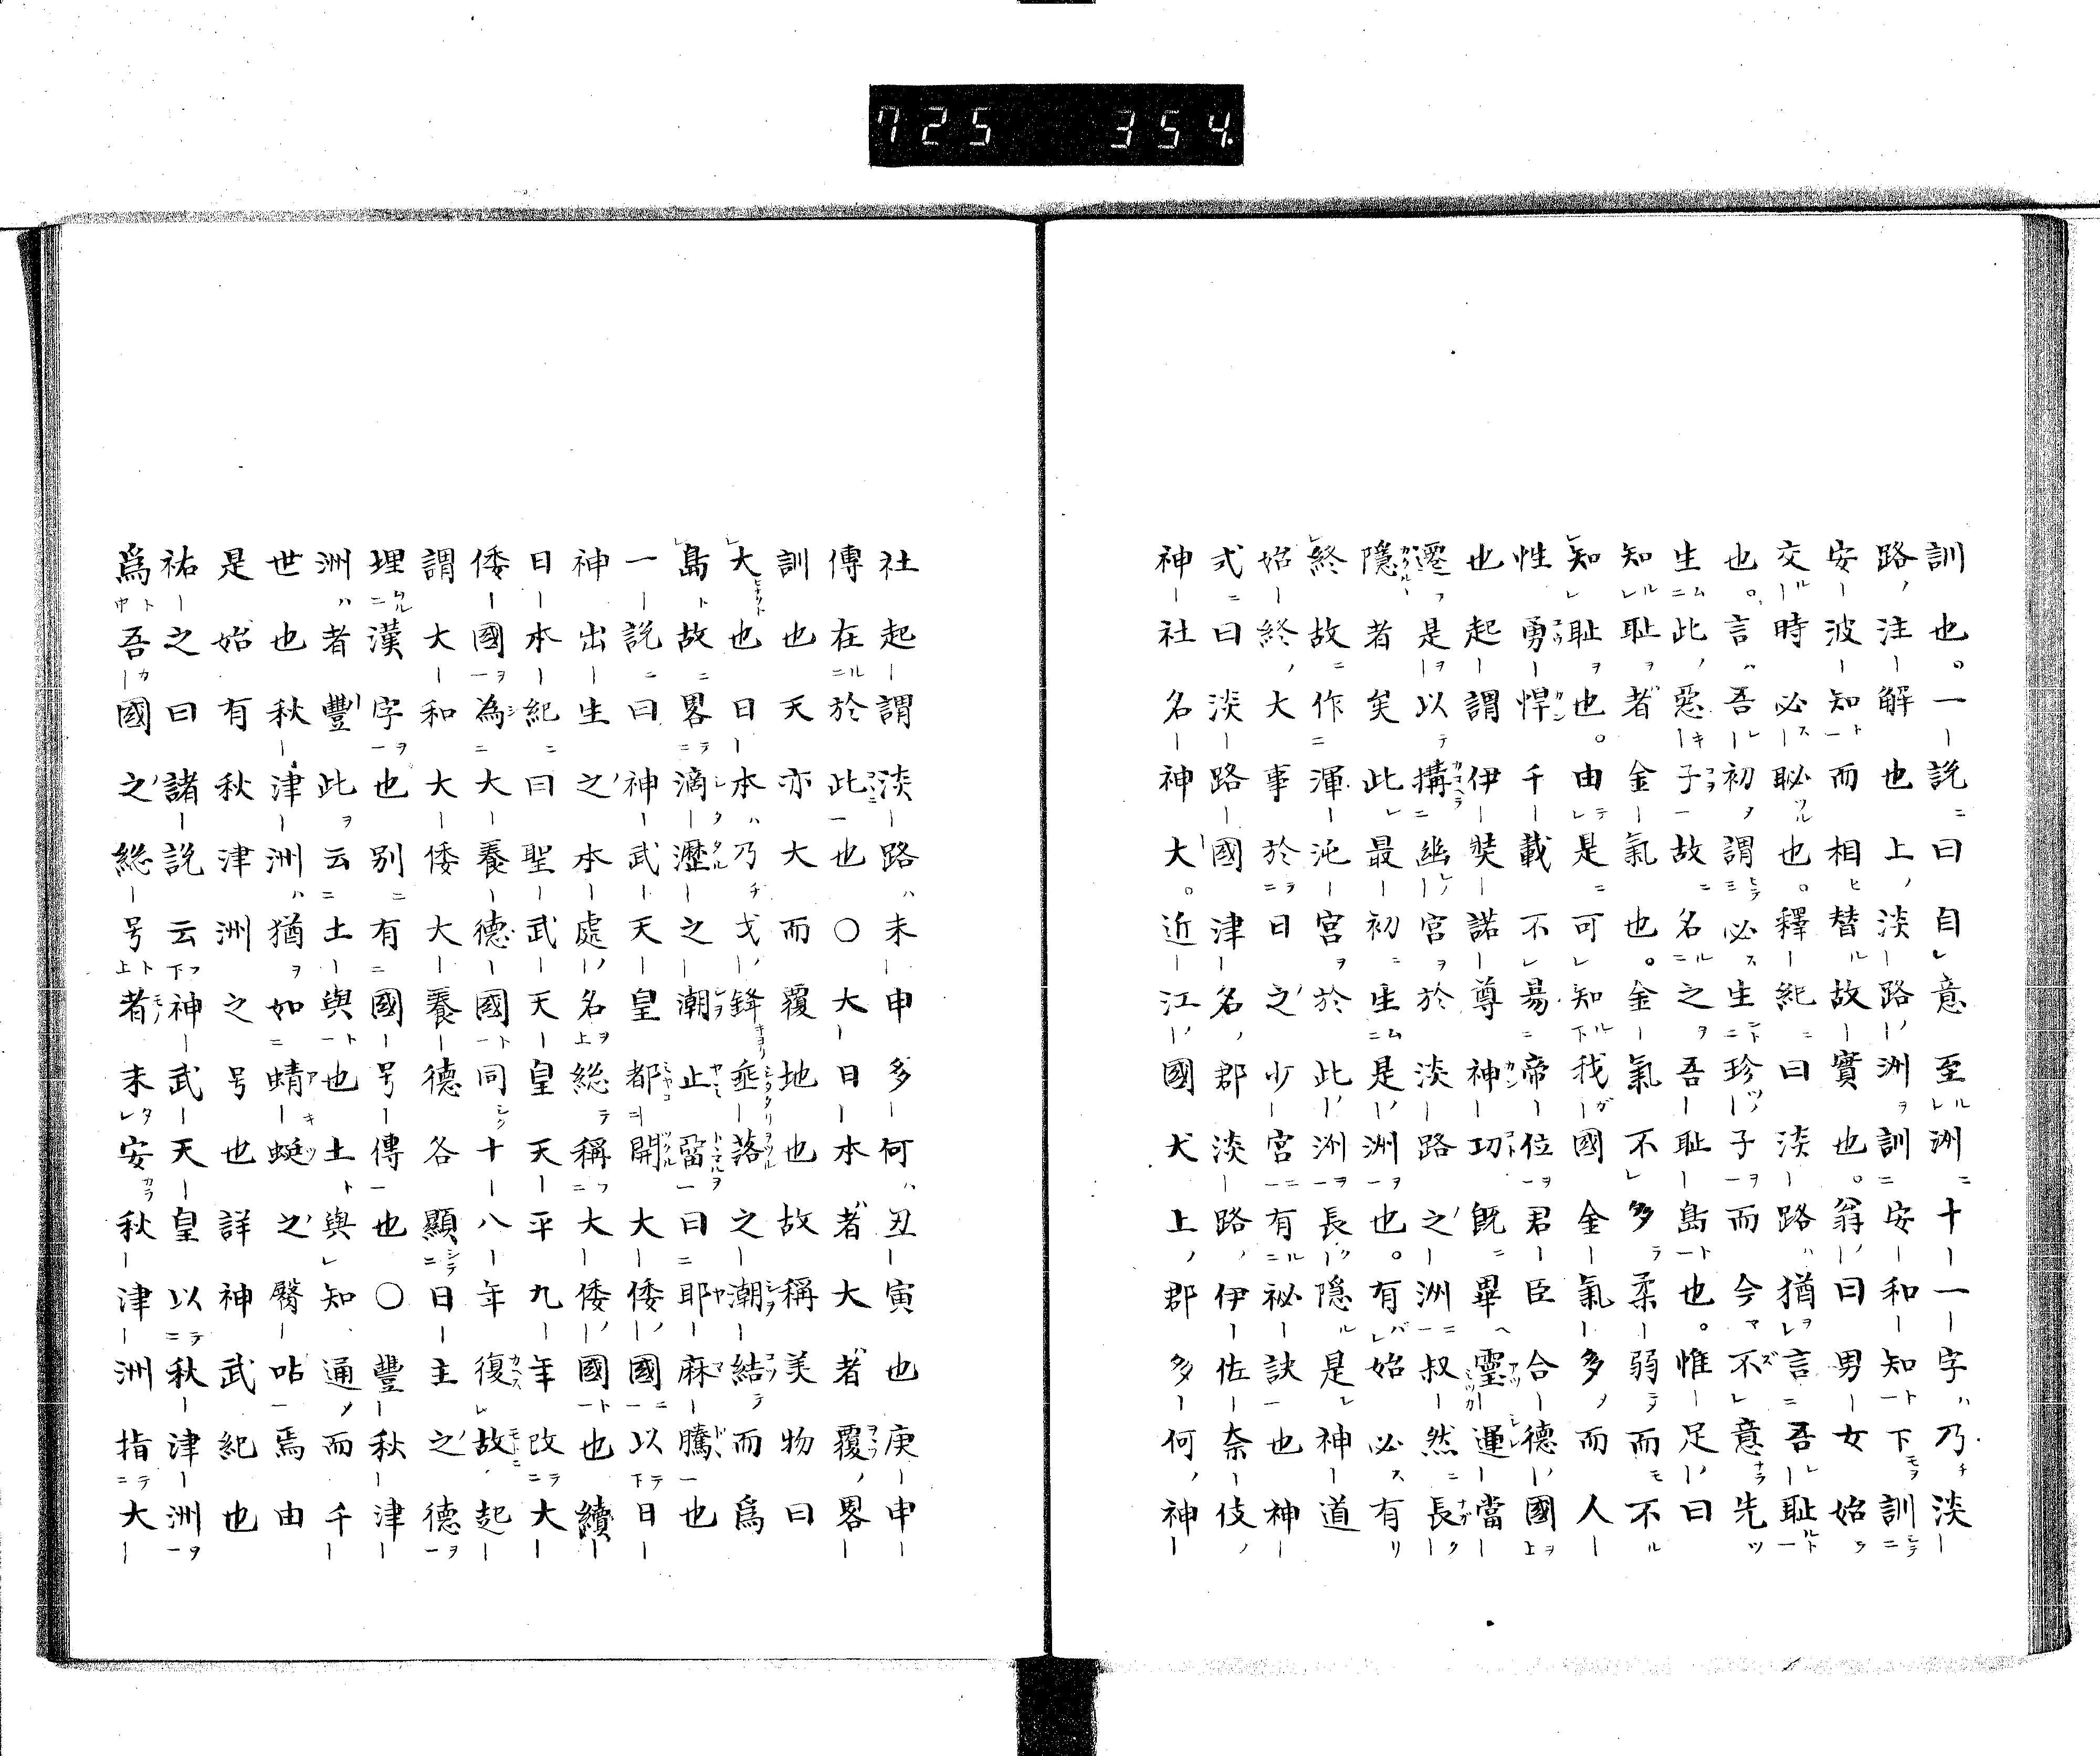 725 354.
訓也。一説曰自意至洲十一字乃淡
路注解也上淡路洲訓安和知下訓
安波知而相替故實也。翁曰男女始
交時必恥也。釋紀曰淡路猶言吾恥
也。言吾初謂必生珍子而今不意先
生此惡子故名之吾恥島也。惟足曰
知恥者金氣也。金氣不多柔弱而不
知恥也。由是可知我國金氣多而人
性勇悍千載不易帝位君臣合德國
也起謂伊奘諾尊神功既畢靈運當
遷是以搆幽宮於淡路之洲叔然長
隱者矣此最初生是洲也。有始必有
終故作渾沌宮於此洲長隱是神道
始終大事於日之少宮有祕訣也神
式曰淡路國津名郡淡路伊佐奈伎
神社名神大。近江國犬上郡多何神
社起謂淡路未申多何丑寅也庚申
傳在於此也〇大日本者大者覆畧
訓也天亦大而覆地也故稱美物曰
大也日本乃戈鋒垂落之潮結而爲
島故畧滴瀝之潮止畱曰耶麻騰也
一說曰神武天皇都開大倭國以日
神出生之本處名総稱大倭國也續
日本紀曰聖武天皇天平九年改大
倭國為大養德國同十八年復故起
謂大和大倭大養德各顯日主之德
埋漢字也别有國号傳也〇豐秋津
洲者豐此云土與也土與知通而千
世也秋津洲猶如蜻蜓之臀呫焉由
是始有秋津洲之号也詳神武紀也
祐之曰諸説云神武天皇以秋津洲
爲吾國之総号者未安秋津洲指大